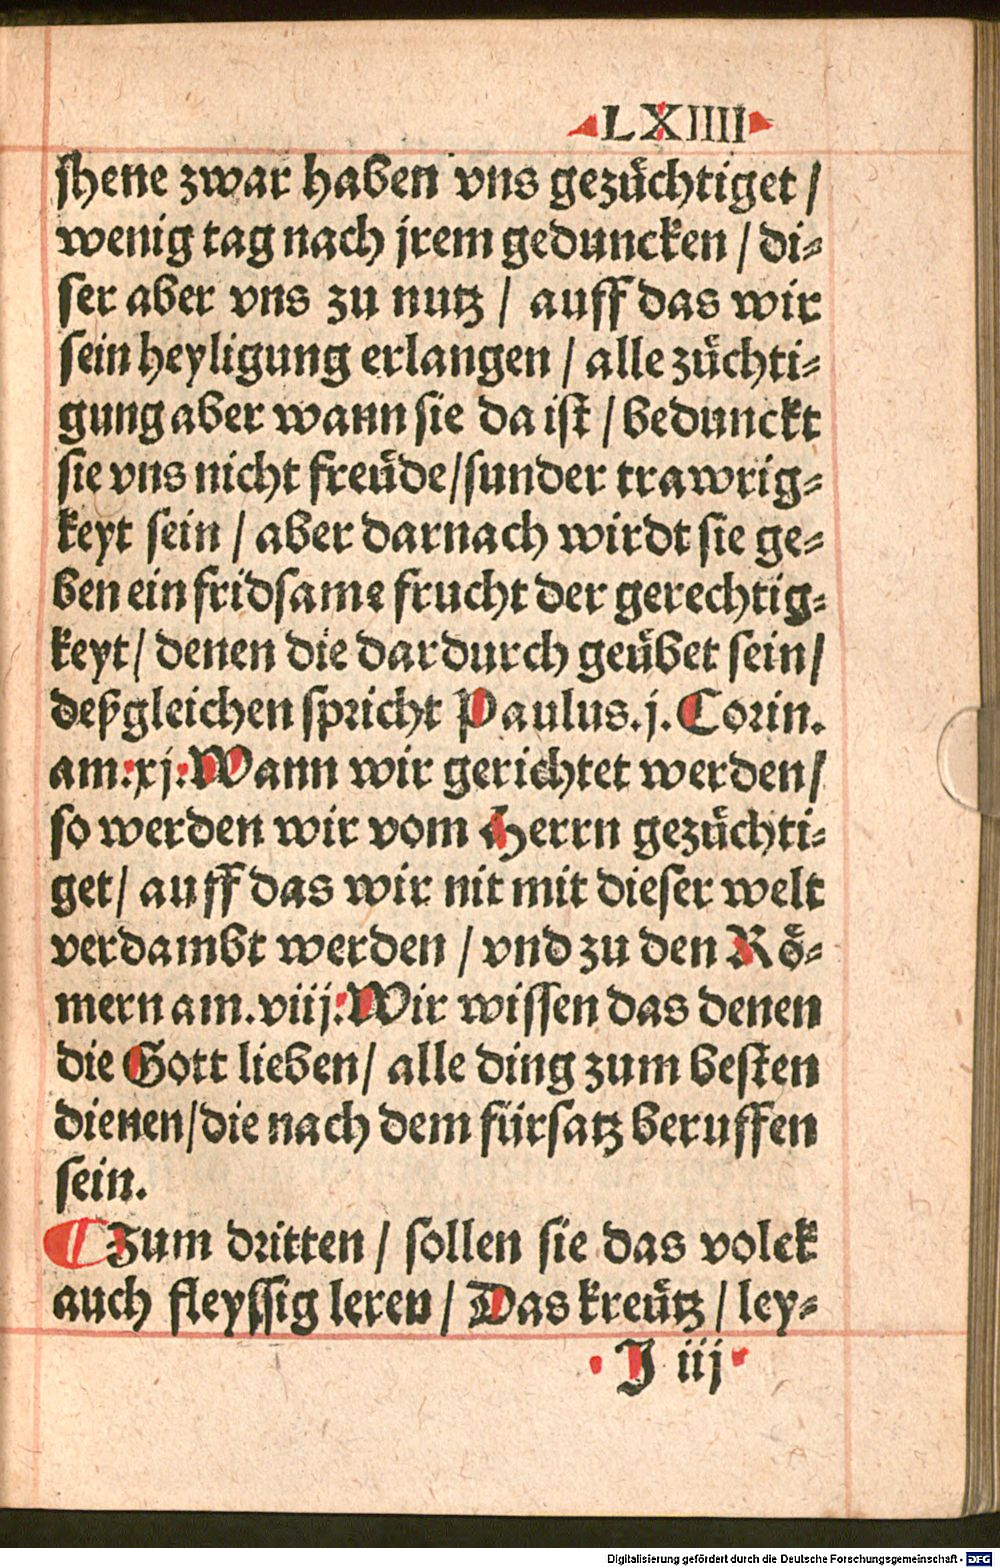 LXIIII
jhene zwar haben vns gezuͤchtiget /
wenig tag nach jrem geduncken / di-
ser aber vns zu nutz / auff das wir
sein heyligung erlangen / alle zuͤchti-
gung aber wann sie da ist / bedunckt
sie vns nicht freuͤde / sunder trawrig-
keyt sein / aber darnach wirdt sie ge-
ben ein fridsame frucht der gerechtig-
keyt / denen die dardurch geuͤbet sein /
deßgleichen spricht Paulus.j. Corin.
am.xj. Wann wir gerichtet werden /
so werden wir vom Herrn gezuͤchti-
get / auff das wir nit mit dieser welt
verdambt werden / vnd zu den Roͤ-
mern am.viij. Wir wissen das denen
die Gott lieben / alle ding zum besten
dienen / die nach dem fürsatz beruffen
sein.
¶ Zum dritten / sollen sie das volck
auch fleyssig leren / Das kreuͤtz / ley-
J iij
Digitalisierung gefördert durch die Deutsche Forschungsgemeinschaft - DFG